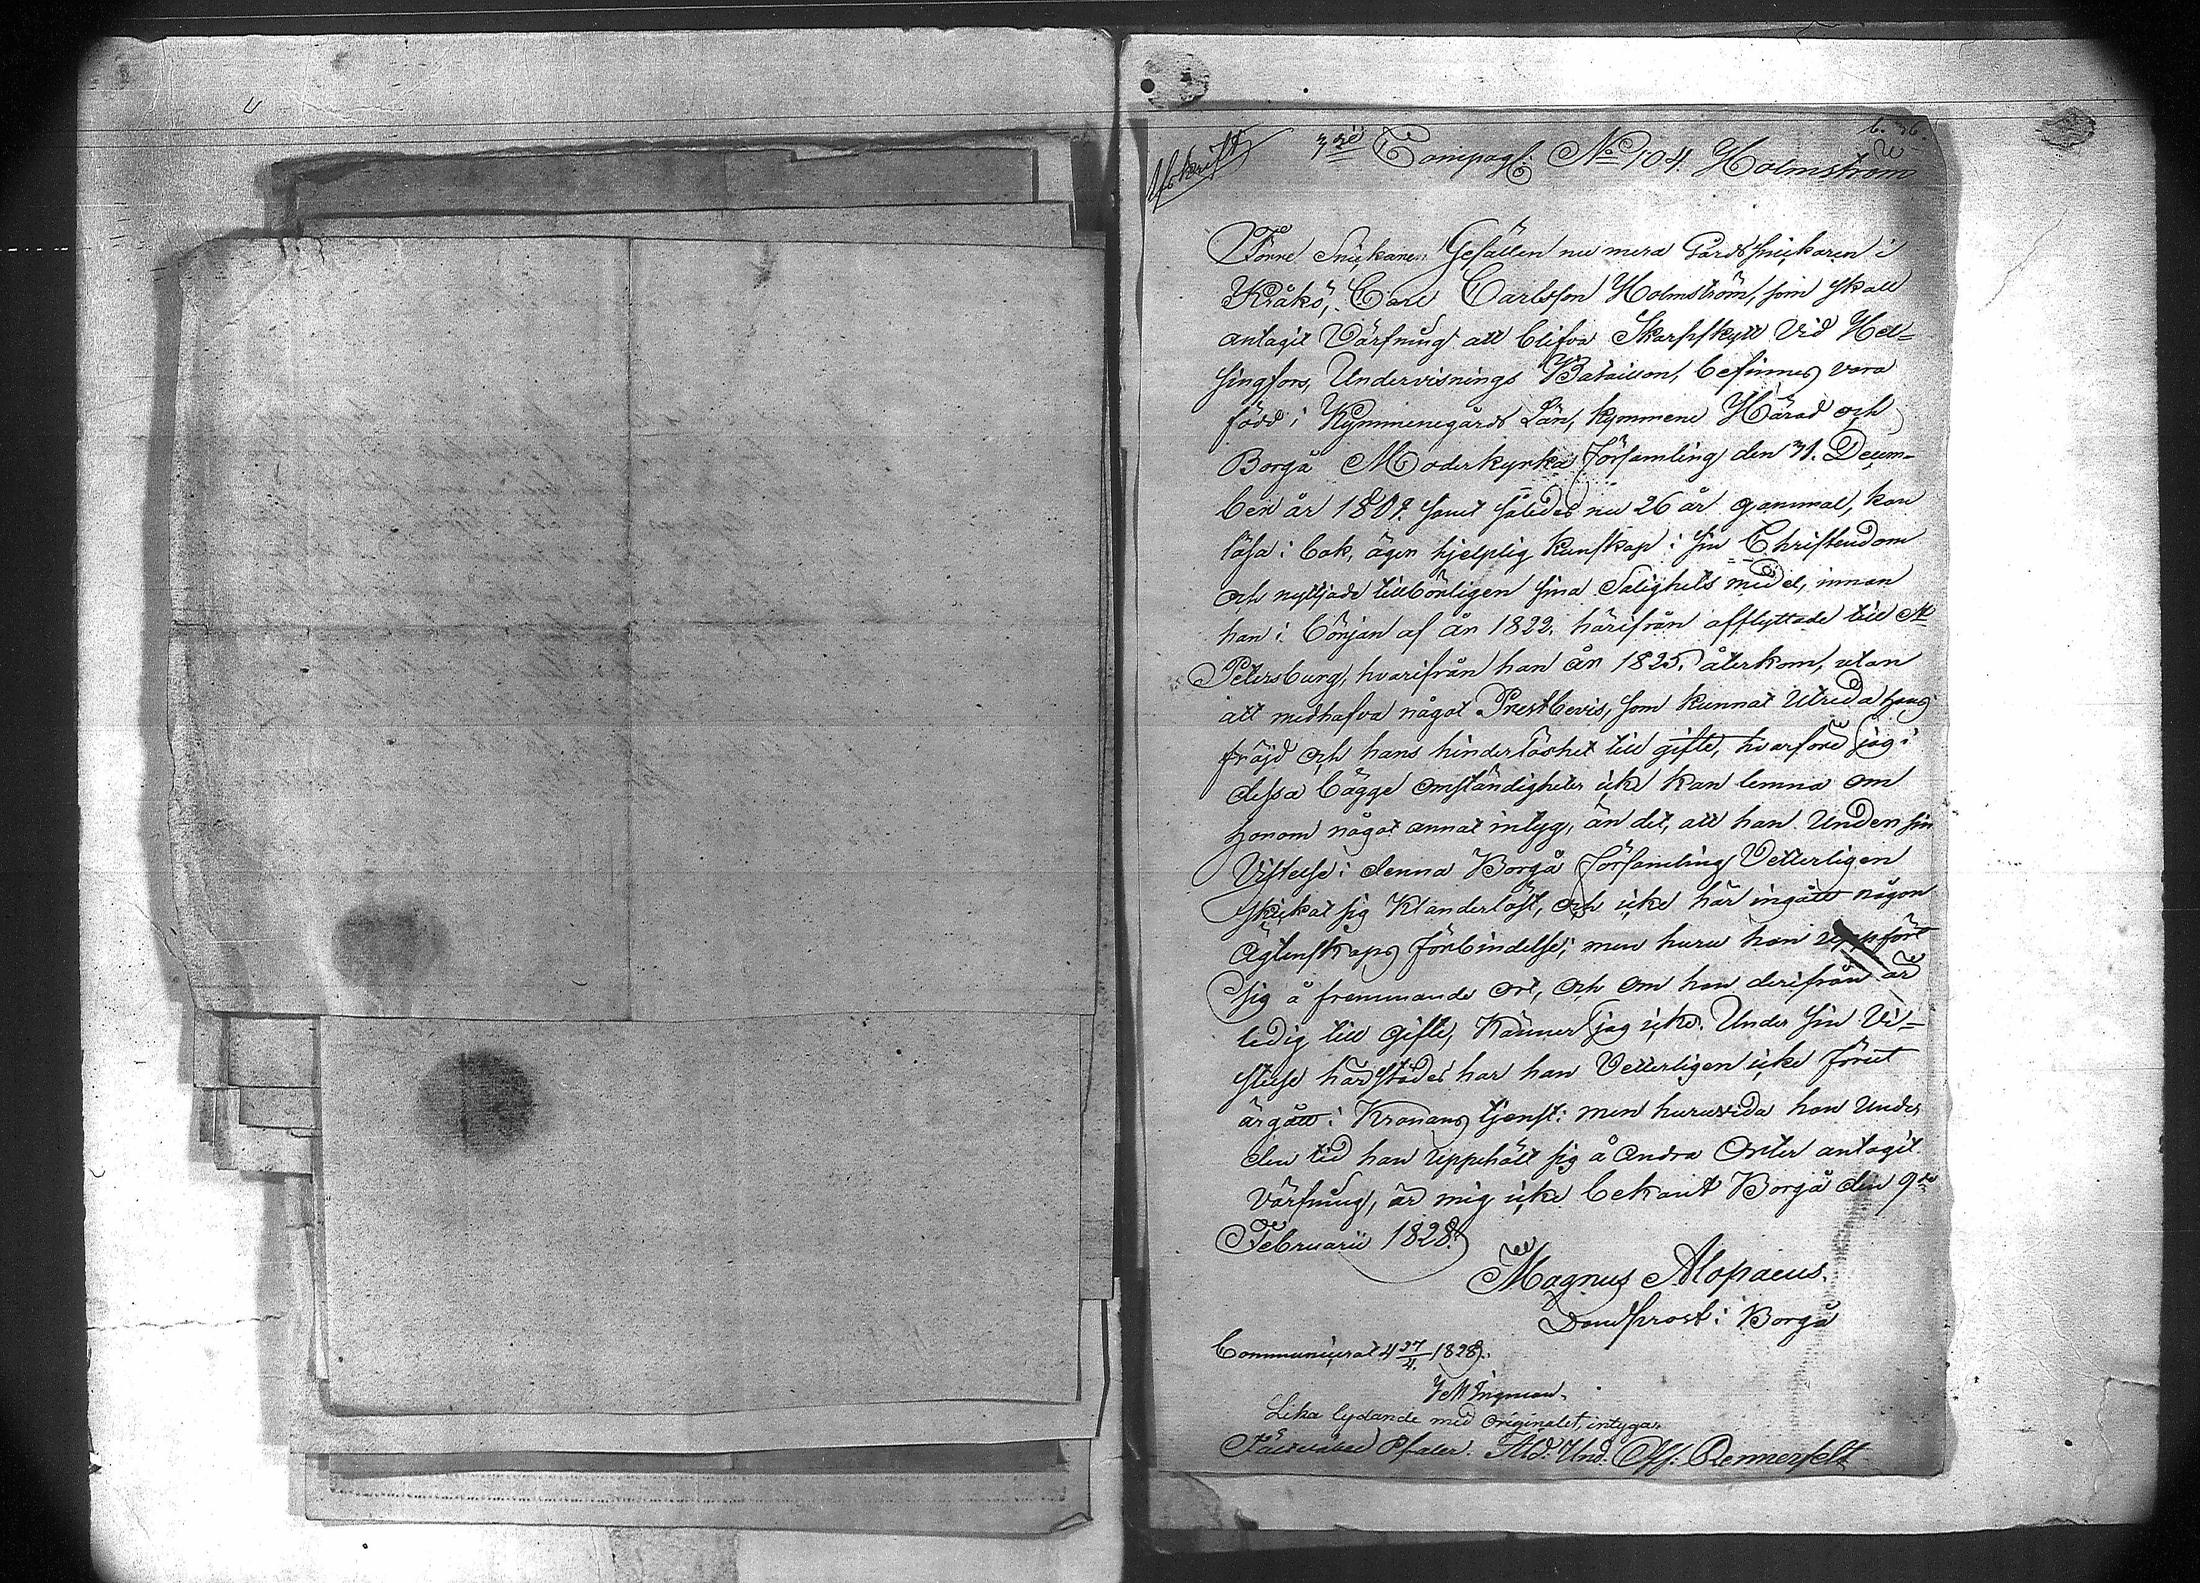 b. 36.
Afskrift
3die Compag: No 104. Holmström
Förre Snickare Gesällen nu mera Gårds Snickaren i
Kråkö, Carl Carlsson Holmström, som skall
antagit Värfning att blifva Skarpskytt vid Hel=
singfors, Undervisnings Bataillon, befinnes vara
född i Kymmenegårds Län, Kymmene Härad och
Borgå Moderkyrko Församling den 31. Decem-
ber år 1801. samt således nu 26 år gammal, kan
läsa i bok, äger hjelplig kunskap i sin Christendom
och nyttjade tillbörligen sina Salighets medel, innan
han i början af år 1822. härifrån afflyttade till St
Petersburg, hvarifrån han år 1825. återkom, utan
att medhafva något Prestbevis, som kunnat utreda hans
fräjd och hans hinderlöshet till gifte, hvarföre jag i
dessa bägge omständigheter icke kan lemna om
honom något annat intyg, än det, att han under sin
Vistelse i denna Borgå Församling Vetterligen
skickat sig klanderlöst, och icke här ingått någon
Ägtenskaps förbindelse; men huru han uppfört
sig å fremmande ort, och om han derifrån är
ledig till gifte, känner jag icke. Under sin Vi=
stelse härstädes har han Vetterligen icke förut
ärgått i Kronans tjenst: men huruvida han under
den tid han uppehållt sig å andra Orter antagit
Värfning, är mig icke bekant Borgå den 9de
Februarii 1828.
Magnus Alopaeus.
Domprost i Borgå
Communicerat 4 27/4. 1828.
Ingman.
Lika lydande med Originalet, intygar
Pfaler. Und. Off: Rennerfelt